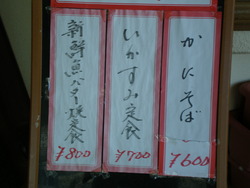 かにそば
¥600
いかすみ定食
¥700
新鮮魚バター焼定食
¥800